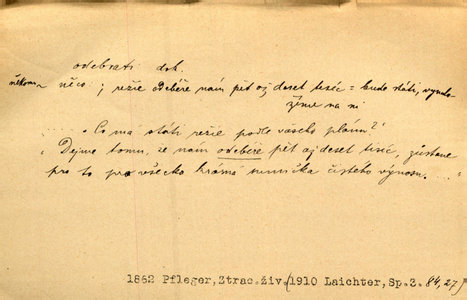 odebrati dok.
někomu něco; režie odebéře nám pět až deset tisíc = bude státi, vynalo-
žíme na ni
„Co má státi režie podle vašeho plánu?“
„Dejme tomu, že nám odebéře pět až deset tisíc, zůstane
pro to pro všecko hrázná sumička čistého výnosu..."
1862 Pfleger, Ztrac.živ./1910 Laichter, Sp.2. 84,27